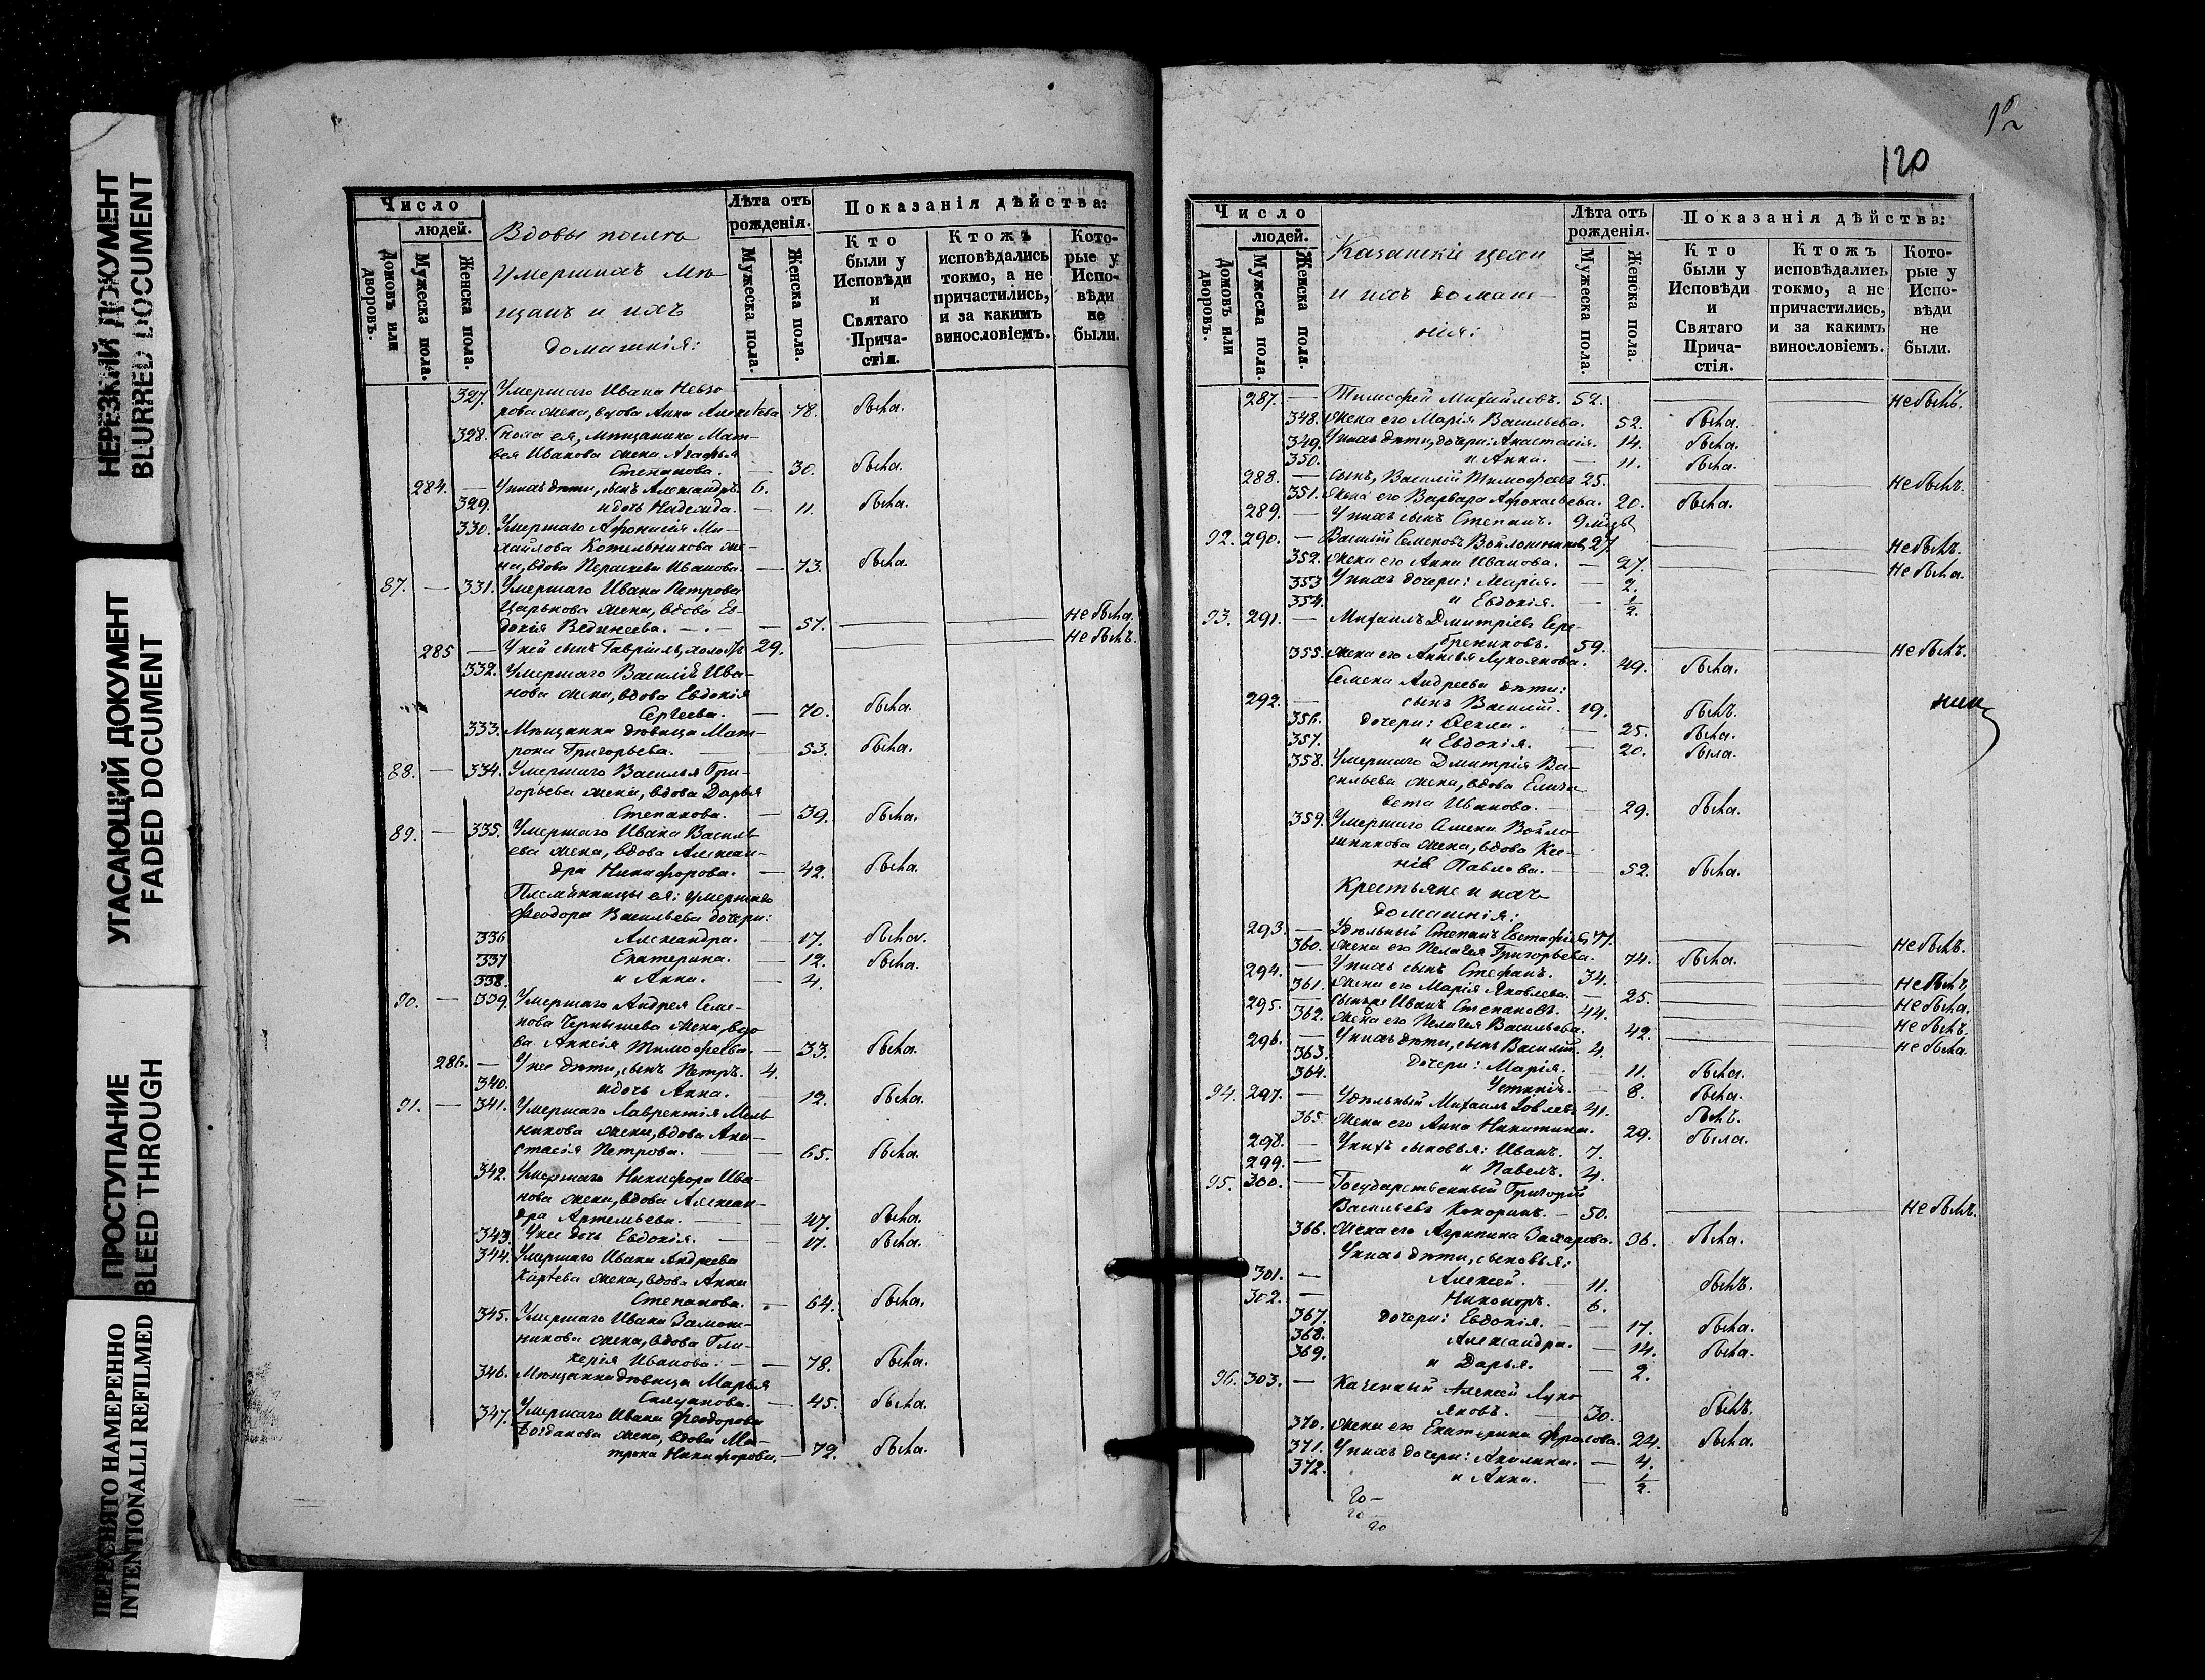 НЕРЕЗКИЙ ДОКУМЕНТ
BLURRED DOCUMENT
УГАСАЮЩИЙ ДОКУМЕНТ
FADED DOCUMENT
ПРОСТУПАНИЕ
BLEED THROUGH
ПЕРЕСНЯТО НАМЕРЕННО
INTENTIONALLI REFILMED
Число
людей.
Домовъ или дворовъ.
Мужеска пола.
Женска пола.
Вдовы послѣ
умершихъ мѣ
щанъ и ихъ
домашнія:
Лѣта отъ рожденія.
Мужеска пола.
Женска пола.
Показанія дѣйства:
Кто были у Исповѣди и Святаго Прича- стія.
Ктожъ исповѣдались токмо, а не причастились, и за какимъ винословіемъ.
Кото- рые у Испо- вѣди не были.
327. Умершаго Ивана Невзо-
рова жена, вдова Анна Алексѣева 78. была.
328. Сноха ея, мѣщанина Мат-
вея Иванова жена Агафья
Степанова. — 30. была.
284. — У нихъ дѣти, сынъ Александръ. 6.
329. и дочь Надежда. — 11. была.
330. Умершаго Афонасія Ми-
хайлова Котельникова же-
на, вдова Параскева Иванова. — 73. была.
87. — 331. Умершаго Ивана Петрова
Царькова жена, вдова Ев-
докія . — 57. не была.
285 — У ней сынъ Гавріилъ, холостъ 29. не былъ.
332. Умершаго Василія Ива-
нова жена, вдова Евдокія
Сергеева. — 70. была.
333. Мѣщанка дѣвица Мат-
рона Григорьева. — 53. была.
88. — 334. Умершаго Василья Гри-
горьева жена, вдова Дарья
Степанова. — 39. была.
89. — 335. Умершаго Ивана Василь-
ева жена, вдова Алексан-
дра Никифорова. — 42. была.
Племянницы ея: умершаго
Феодора Васильева дочери:
336 Александра. — 17. была.
337 Екатерина. — 12. была.
338. и Анна. — 4.
90. — 339. Умершаго Андрея Семе-
нова Чернышева жена, вдо
ва Анисія Тимофеева. — 33. была.
286. — У нее дѣти, сынъ Петръ. 4.
340. и дочь Анна. — 12. была.
91. — 341. Умершаго Лаврентія Мель
никова жена, вдова Ана-
стасія Петрова. — 65. была.
342. Умершаго Никифора Ива-
нова жена, вдова Алексан-
дра Артемьева. — 47. была.
343. У нее дочь Евдокія. — 17. была.
344. Умершаго Ивана Андреева
жена, вдова Анна
Степанова. — 64. была.
345. Умершаго Ивана
никова жена, вдова Гли-
керія Иванова. — 78. была.
346. Мѣщанка дѣвица Марья
— 45. была.
347. Умершаго Ивана Феодорова
Богданова жена, вдова Ма-
трона Никифорова. — 72. была.
120
Число
людей.
Домовъ или дворовъ.
Мужеска пола.
Женска пола.
Казанскіе цехи
и ихъ домаш-
нія:
Лѣта отъ рожденія.
Мужеска пола.
Женска пола.
Показанія дѣйства:
Кто были у Исповѣди и Святаго Прича- стія.
Ктожъ исповѣдались токмо, а не причастились, и за какимъ винословіемъ.
Кото- рые у Испо- вѣди не были.
287. — Тимофей Михайловъ. 52. не былъ.
348. Жена его Марія Васильева. 52. была.
349. У нихъ дѣти, дочери: Анастасія. 14. была.
350. и Анна. — 11. была.
288. — сынъ, Василій Тимофеевъ 25. не былъ.
351. Жена его Варвара Афонасьева. 20. была.
289. — У нихъ сынъ Степанъ. 9 мцъ
92. 290. — Василій Семеновъ Войлошниковъ 27. не былъ.
352. Жена его Анна Иванова. — 27. не была.
353 У нихъ дочери: Марія. — 2.
354. и Евдокія. — 1/2.
93. 291. — Михаилъ Дмитріевъ Сере-
бренниковъ. 59. не былъ.
355. Жена его Лукоянова. 49. была.
Семена Андреева дѣти:
292. — сынъ Василій. 19. былъ.
356. дочери: Фекла. — 25. была.
357. и Евдокія. — 20. была.
358. Умершаго Дмитрія Ва-
сильева жена, вдова Елиза
вета Иванова. — 29. была.
359. Умершаго Семена Войло-
шникова жена, вдова Ксе-
нія Павлова. — 52. была.
Крестьяне и ихъ
домашнія:
293. — Удѣльный Степанъ Евстафіевъ 77. не былъ.
360. Жена его Пелагея Григорьева. 74. была.
294. — У нихъ сынъ Стефанъ. 34. не былъ,
361. Жена его Марія Яковлева. — 25. не была.
295. — Иванъ Степановъ. 44. не былъ.
362. Жена его Пелагея Васильева. 42. не была.
296. — У нихъ дѣти, сынъ Василій. 4.
363. дочери: Марія. — 11. была.
364. Устинія. — 8. была.
94. 297. — Удѣльный Михаилъ Іовлевъ 41. былъ.
365. Жена его Анна Никитина. 29. была.
298. — У нихъ сыновья: Иванъ. 7.
299. — и Павелъ. 4.
95. 300. — Государственный Григорій
Васильевъ Кокоринъ. — 50. не былъ.
366. Жена его Агрипина Захарова. 36. была.
У нихъ дѣти, сыновья:
301. — Алексей. — 11. былъ.
302. — Никоноръ. 6.
367. дочери: Евдокія. — 17. была.
368. Александра. — 14. была.
369. и Дарья. — 2.
96. 303. — Алексей Луко
яновъ. — 30. былъ.
370. Жена его Екатерина Фролова. 24. была.
371. У нихъ дочери: Акилина. — 4.
372. и Анна. — 1/2.